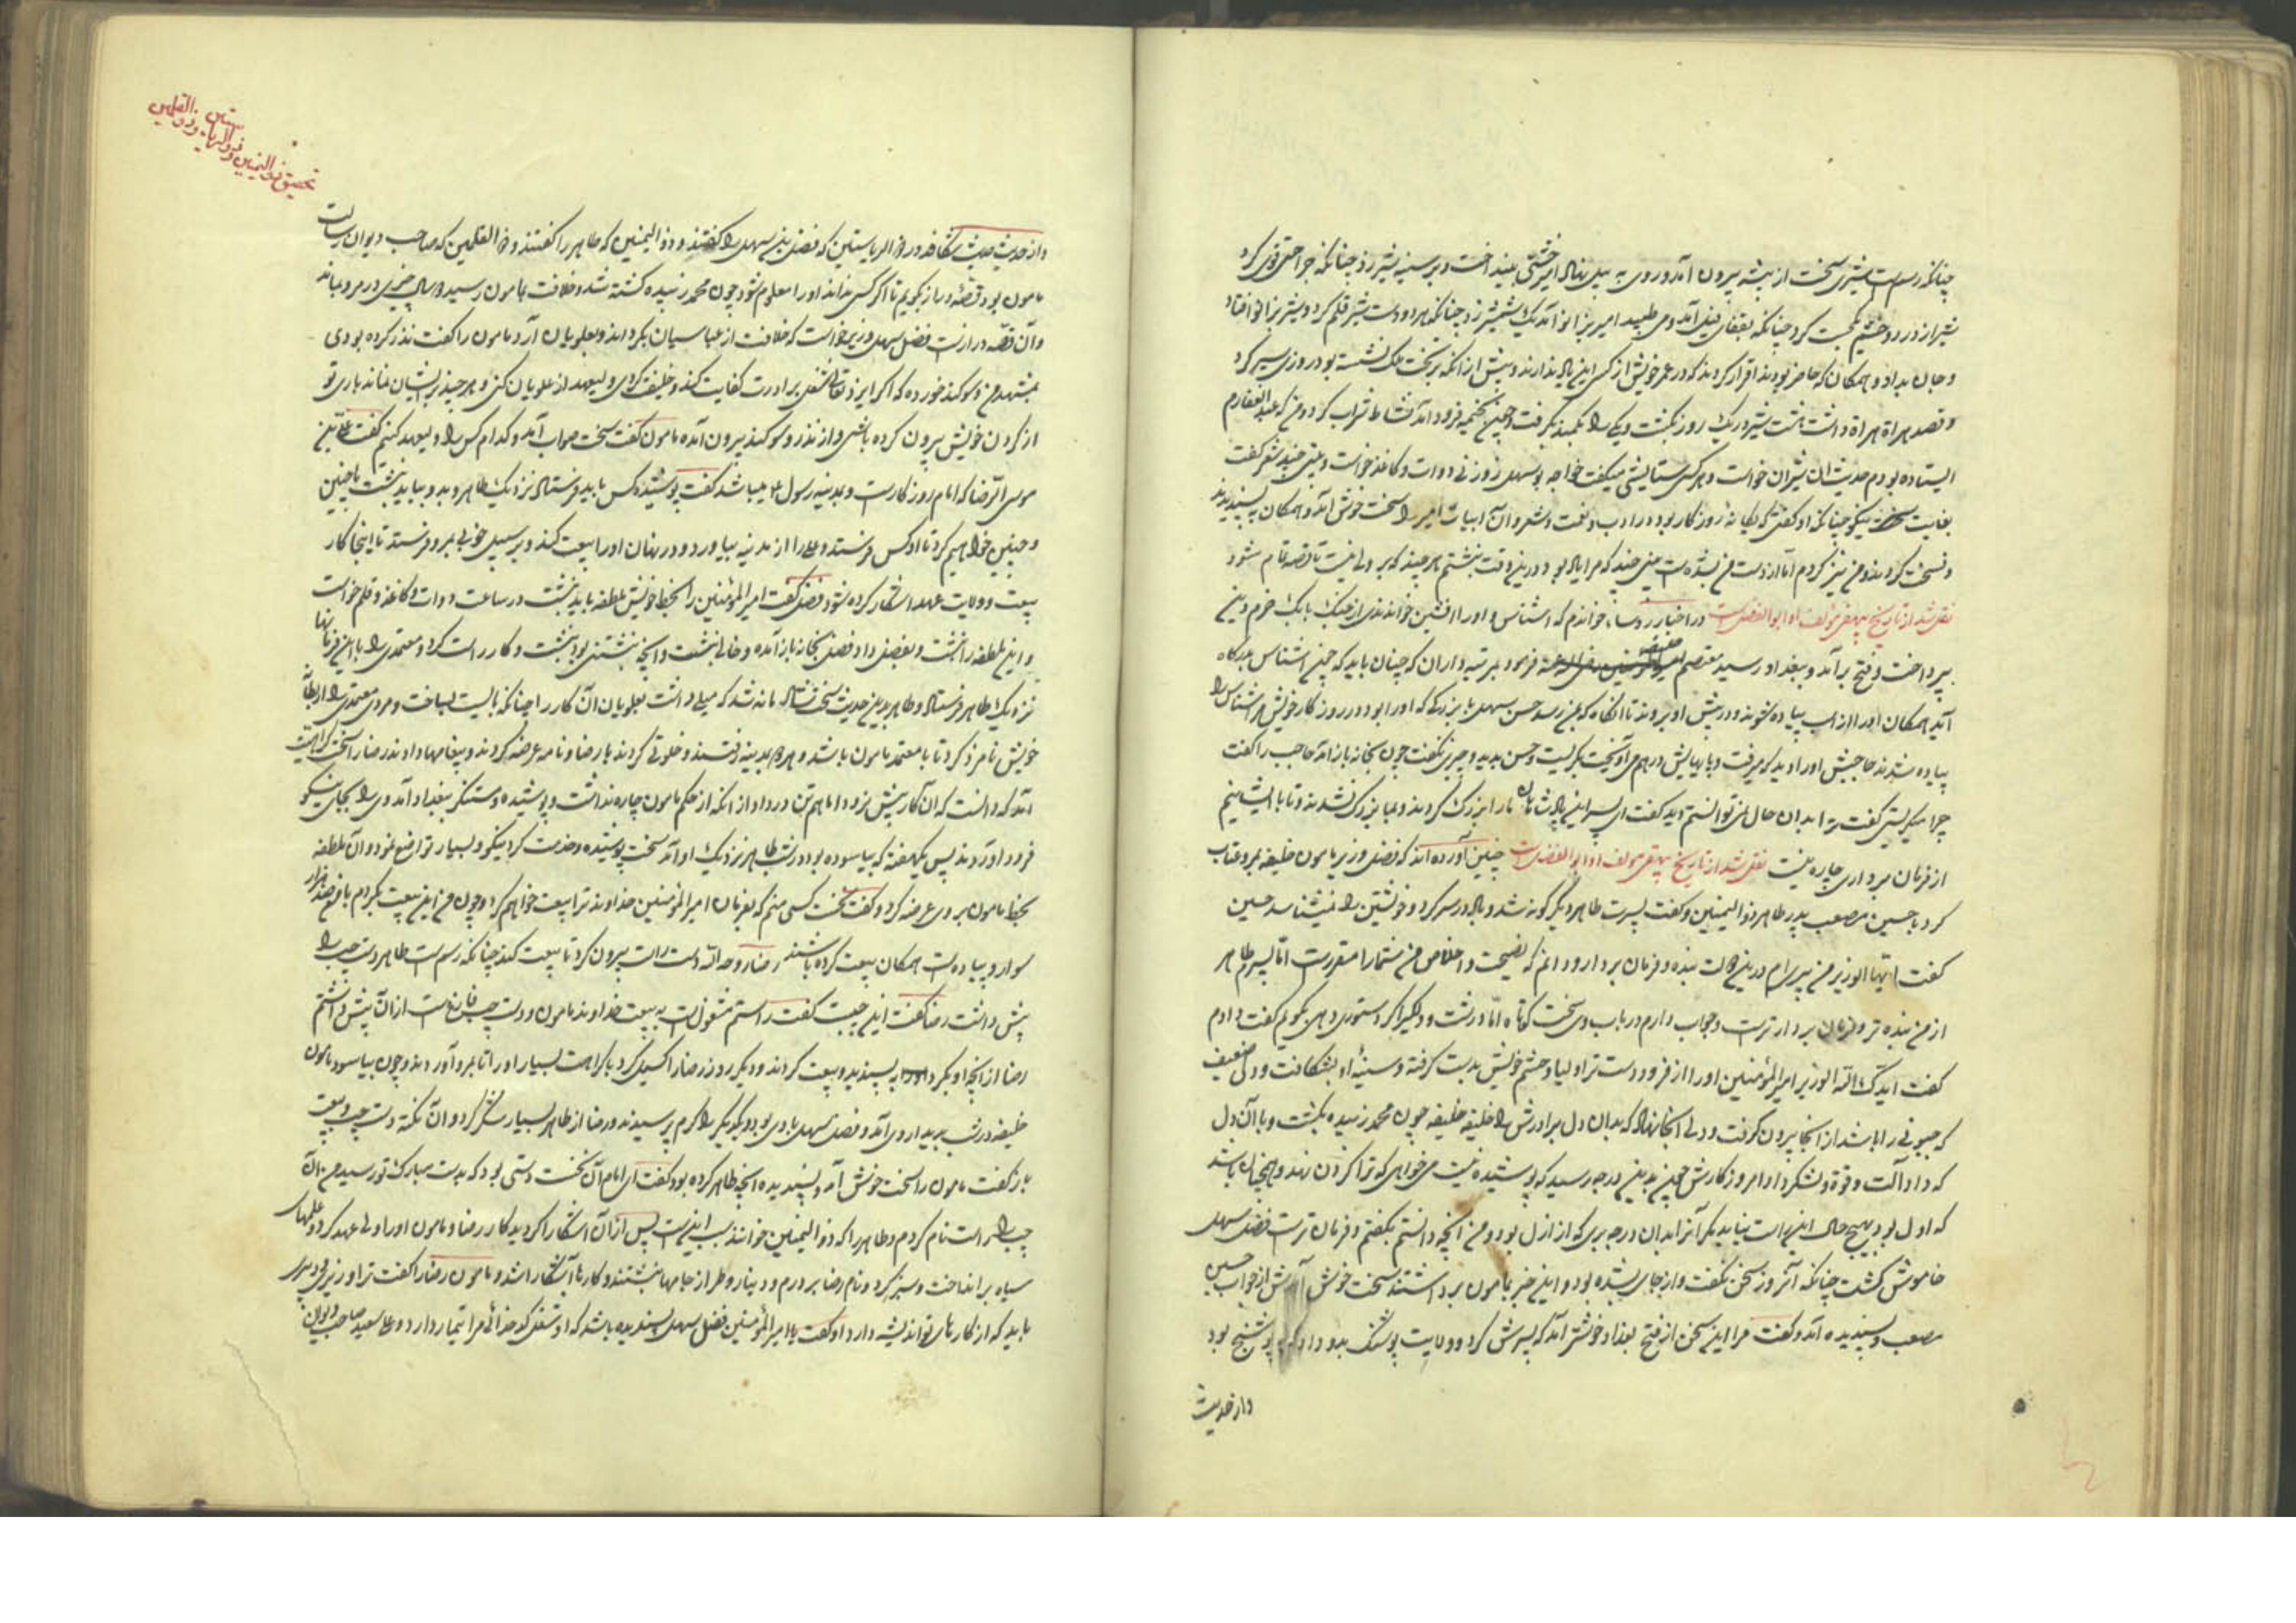 چنانکه رسم است شیری سخت از بیشه بیرون آمد و روی به پیل نهاد امیر خشتی بینداخت و بر سینه شیر زد چنانکه جراحتی قوی کرد
شیر از درد و خشم یک جست کرد چنانکه بقفای پیل آمد و می طپید امیر بزانو آمد یک شمشیر زد چنانکه هر دو دست شیر قلم کرد و شیر بزانو افتاد
و جان بداد و همکان که حاضر بودند اقرار کردند که در عمر خویش از کسی این یاد ندارند و پیش از آنکه بر تخت ملک نشسته بود روزی سیر کرد
و قصد هراة هراة داشت هشت شیر در یک روز بکشت و یکی را بکمند بگرفت و چون بخیمه فرود آمد نشاط شراب کرد و من که عبد الغفارم
ایستاده بودم حدیث آن شیران خواست و هر کسی ستایشی میکفت خواجه بوسهل زوزنی دوات و کاغذ خواست و بیتی چند شعر کفت
بغایت نیکو چنانکه او کفتی که یکانه روزکار بود در ادب و لغت و شعر و آن ابیات امیر را سخت خوش آمد و همکان به پسندیدند
و نسخت کردند و من نیز کردم اما از دست من بشده است بیتی چند که مرا یاد بود درین وقت نبشتم هر چند که بر ولی نیست تا قصه تمام شود
نقل شد از تاریخ بیهقی مولف او ابو الفضل است در اخبار رؤسا خواندم که اشناس و او را افشین خواندندی از جنک بابک خرم دین
بپرداخت و فتح بر آمد و ببغداد رسید معتصم فرمود مرتبه داران که چنان باید که چون اشناس بدرکاه
آید همکان او را از اسب پیاده شوند و در پیش او بروند تا آنکاه که بمن رسد حسن سهل با بزرکی که او را بود در روزکار خویش مر اشناس را
پیاده شدند حاجبش او را دید که میرفت و پایهایش در هم می آویخت بکریست و حسن بدید و چیزی نکفت چون بخانه باز آمد حاجب را کفت
چرا میکریستی کفت ترا بدان حال نمی توانستم دید کفت ای پسر این پادشاهان ما را بزرک کردند و بما بزرک نشدند و تا با ایشانیم
از فرمان برداری چاره نیست نقل شد از تاریخ بیهقی مولف او ابو الفضل است چنین آورده اند که فضل وزیر مامون خلیفه بمرو عتاب
کرد با حسین مصعب پدر طاهر ذو الیمینین و کفت پسرت طاهر دیگر کونه شد و باد در سر کرد و خویشتن را نمیشناسد حسین
کفت ایها الوزیر من پیرام درین دولت بنده و فرمان بردار و دانم که نصیحت و اخلاص من شما را مقرر است اما پسرم طاهر
از من بنده تر و فرمان بردار تر است و جوابی دارم در باب وی سخت کوتاه اما درشت و دلکیر اکر دستوری دهی بکویم کفت دادم
کفت ایدک الله الوزیر امیر المؤمنین او را از فرود دست تر اولیا و حشم خویش بدست کرفته و سینهٔ او بشکافت و دلی ضعیف
که چنوئی را باشد از آنجا بیرون کرفت و دلی آنجا نهاد که بدان دل برادرش را خلیفه خلیفه چون محمد زبیده بکشت و با آن دل
که داد آلت و قوة و لشکر داد امروز کارش چون بدین درجه رسید که پوشیده نیست می خواهی که ترا کردن نهد و همچنان باشد
که اول بود بهیچ حال این راست نیاید مکر آنرا بدان درجه بری که از اول بود و من آنچه دانستم بکفتم و فرمان تراست فضل سهل
خاموش کشت چنانکه آنروز سخن نکفت و از جای بشده بود و این خبر بمامون برداشتند سخت خوش آمدش از جواب حسین
مصعب و پسندیده آمد و کفت مرا این سخن از فتح بغداد خوشتر آمد که پسرش کرد و ولایت پوشنک بدو داد که به پوشنج بود
و از حدیث
تحقیق ذو الیمینین و ذو الریاستین و ذو القلمین
و از حدیث حدیث شکافد در ذو الریاستین که فضل بن سهل را کفتند و ذو الیمینین که طاهر را کفتند و ذو القلمین که صاحب دیوان رسالت
مامون بود قصهٔ دراز بکویم تا اکر کسی نداند او را معلوم شود چون محمد زبیده کشته شد و خلافت بمامون رسید دو سال و چیزی در مرو بماند
و آن قصه دراز است فضل سهل وزیر خواست که خلافت از عباسیان بکرداند و بعلویان آرد مامون را کفت نذر کرده بودی
بمشهد من و سوکند خورده که اکر ایزد تعالی شغل برادرت کفایت کند و خلیفت کردی ولیعهد از علویان کنی و هر چند بر ایشان نماند باری تو
از کردن خویش بیرون کرده باشی و از نذر و سوکند بیرون آمده مامون کفت سخت صواب آمد و کدام کس را ولیعهد کنیم کفت علی بن
موسی الرضا که امام روزکار است و بمدینه رسول ع میباشد کفت پوشیده کس باید فرستاد نزدیک طاهر و بدو بباید نبشت ما چنین
و چنین خواهیم کرد تا او کس فرستد و علی را از مدینه بیاورد و در نهان او را بیعت کند و بر سبیل خوبی بمرو فرستد تا اینجا کار
بیعت و ولایت عهد آشکار کرده شود فضل کفت امیر المؤمنین را بخط خویش ملطفه باید نبشت در ساعت دوات و کاغذ و قلم خواست
و این ملطفه را نبشت و بفضل داد فضل بخانه باز آمده و خالی بنشست و آنچه نبشتنی بود نبشت و کار راست کرد و معتمدی را با این فرمانها
نزدیک طاهر فرستاد و طاهر بدین حدیث سخت شادمانه شد که میلی داشت بعلویان آن کار را چنانکه بایست بساخت و مردی معتمد را از بطانهٔ
خویش نامزد کرد تا با معتمد مامون باشد و هر دو بمدینه رفتند و خلوتی کردند با رضا و نامه عرضه کردند و پیغامها دادند رضا را سخت کراهیت
آمد که دانست که آن کار پیش نرود اما هم تن در داد از آنکه از حکم مامون چاره نداشت و پوشیده و متنکر ببغداد آمد وی را بجای نیکو
فرود آوردند پس یکهفته که بیاسوده بود در شب طاهر نزدیک او آمد سخت پوشیده و خدمت کرد نیکو و بسیار تواضع نمود و آن ملطفه
بخط مامون بر وی عرضه کرد و کفت نخست کسی منم که بفرمان امیر المؤمنین خداوند ترا بیعت خواهم کرد و چون من این بیعت بکردم با من صد هزار
سوار و پیاده است همکان بیعت کرده باشند رضا روحه الله دست راست بیرون کرد تا بیعت کند چنانکه رسم است طاهر دست چپ را
پیش داشت رضا کفت این چیست کفت راستم مشغول است به بیعت خداوند مامون و دست چپ فارغ است از آن پیش داشتم
رضا از آنچه او بکرد به پسندید و بیعت کردند و دیگر روز رضا را کسیل کرد با کرامت بسیار او را تا بمرو آوردند و چون بیاسود مامون
خلیفه در شب بدیدار وی آمد و فضل سهل با وی بود و یکدیگر را کرم پرسیدند و رضا از طاهر بسیار شکر کرد و آن نکته دست چپ و بیعت
باز کفت مامون را سخت خوش آمد و پسندیده آنچه طاهر کرده بود کفت ای امام آن نخست دستی بود که بدست مبارک تو رسید من آن
چپ را راست نام کردم و طاهر را که ذو الیمینین خوانند سبب اینست پس از آن آشکارا کردید کار رضا و مامون او را ولی عهد کرد و علمهای
سیاه بر انداخت و سبز کرد و نام رضا بر درم و دینار و طراز جامها نبشتند و کارها آشکارا شد و مامون رضا را کفت ترا وزیری و دبیری
باید که از کارهای تو اندیشه دارد او کفت یا امیر المؤمنین فضل سهل بسندیده باشد که او شغل کدخدائی مرا تیمار دارد و علی سعید صاحب دیوان